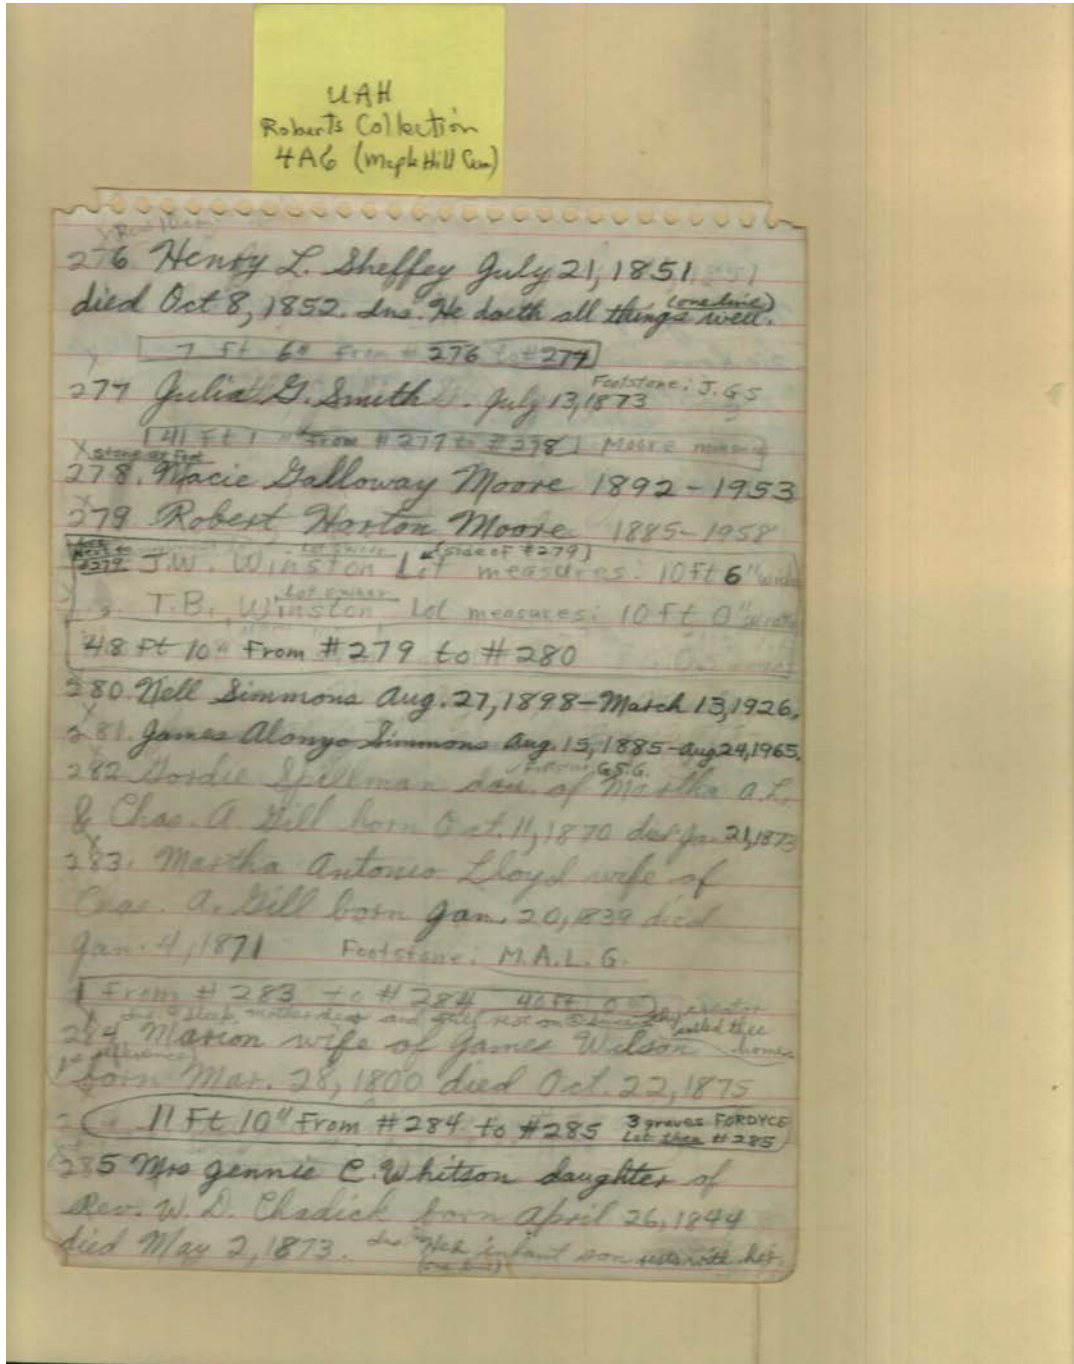 UAH
Roberts Collection
4A6 (Maple Hill Cem)
276 Henry L. Sheffey July 21, 1851
died Oct 8, 1852. Ins. He doeth all things well. (one line)
7 ft 6" From #276 to #277
277 Julia G. Smith. July 13, 1873 Footstone: J.G.S
41 ft 1" From #277 to #278 Moore
X stone at foot
278. Macie Galloway Moore 1892-1953
279 Robert Horton Moore 1885-1958
Next to #279: J.W. Winston Lot measures: 10 ft 6" wide
Lot owner (side of #279)
T.B. Winston Lot measures: 10 ft 0"
Lot owner
48 ft 10" From #279 to #280
280 Nell Simmons Aug. 27, 1898-March 13, 1926.
281. James Alonzo Simmons Aug. 15, 1885-Aug 24, 1965.
282 Gordie Spillman dau. of Martha A.L. G.S.G.
& Chas. A Gill born Oct. 11, 1870 died Ja. 21, 1873
283. Martha Antonio Lloyd wife of
Chas. A. Gill born Jan. 20, 1839 died
Jan. 4, 1871 Footstone: M.A.L.G.
From #283 to #284 40 ft 0"
Ins. Sleep mother dear and rest on called thee home
284. Marion wife of James Wilson
born Mar. 28, 1800 died Oct. 22, 1875
11 Ft 10" From #284 to #285 3 graves FORDYCE
Lot then #285
285 Mrs Jennie C. Whitson daughter of
Rev. W. D. Chadick born April 26, 1844
died May 2, 1873. Ins. "Her infant son rests with her.
(one line)